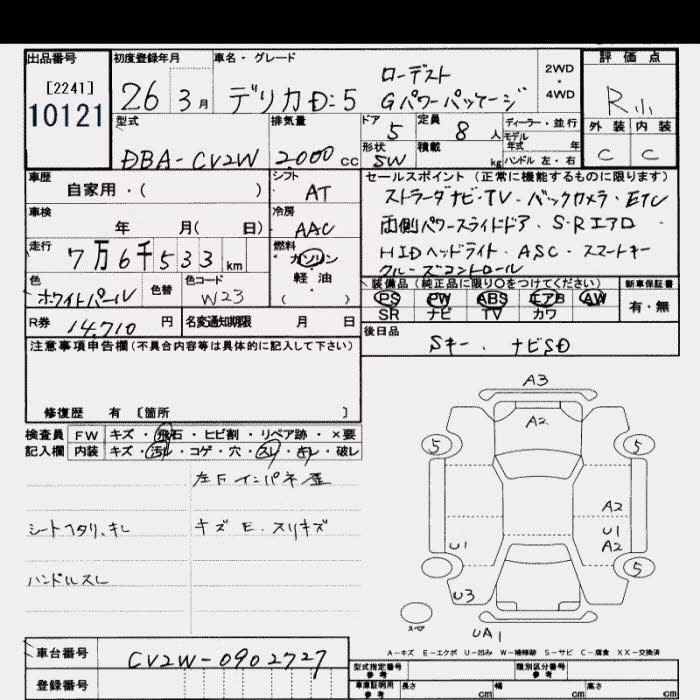 出品番号 初度登録年月 車名・グレード 評価点
[2241] 10121
26 3月 デリカD:5 ローデスト Gパワーパッケージ 2WD・4WD R小
型式 排気量 ドア 定員 ディーラー・並行 外装 内装
DBA-CV2W 2000cc 5 8人 モデル年式 年 C C
形状 SW 積載 kg ハンドル 左・右
車歴 シフト セールスポイント(正常に機能するものに限ります)
自家用・( ) AT ストラーダナビ・TV・バックカメラ・ETC
車検 冷房 両側パワースライドドア・S-Rエアロ・
年 月( 日) AAC HIDヘッドライト・ASC・スマートキー
走行 燃料 クルーズコントロール
7万6千533km ガソリン
軽油
( )
色 色替 色コード 装備品(純正品に限り○をつけてください) 新車保証書
ホワイトパール W23 PS PW ABS エアB AW 有・無
SR ナビ TV カワ
R券 14,710円 名変通知期限 月 日 後日品
Sキー・ナビSD
注意事項申告欄(不具合内容等は具体的に記入して下さい)
修復歴 有 〔箇所 〕
検査員記入欄 FW キズ・飛石・ヒビ割・リペア跡・×要
内装 キズ・汚れ・コゲ・穴・スレ・キレ・破レ
左Fインパネ歪
シートヘタリ、キレ キズE、スリキズ
ハンドルスレ
A3
A2
5 5
A2
U1
U1 A2
5
U3
スペア UA1
A-キズ E-エクボ U-凹み W-補修跡 S-サビ C-腐食 XX-交換済
車台番号 CV2W-0902727 型式指定番号 参考 類別区分番号 参考
登録番号 車庫証明用 参考 長さ cm 幅 cm 高さ cm